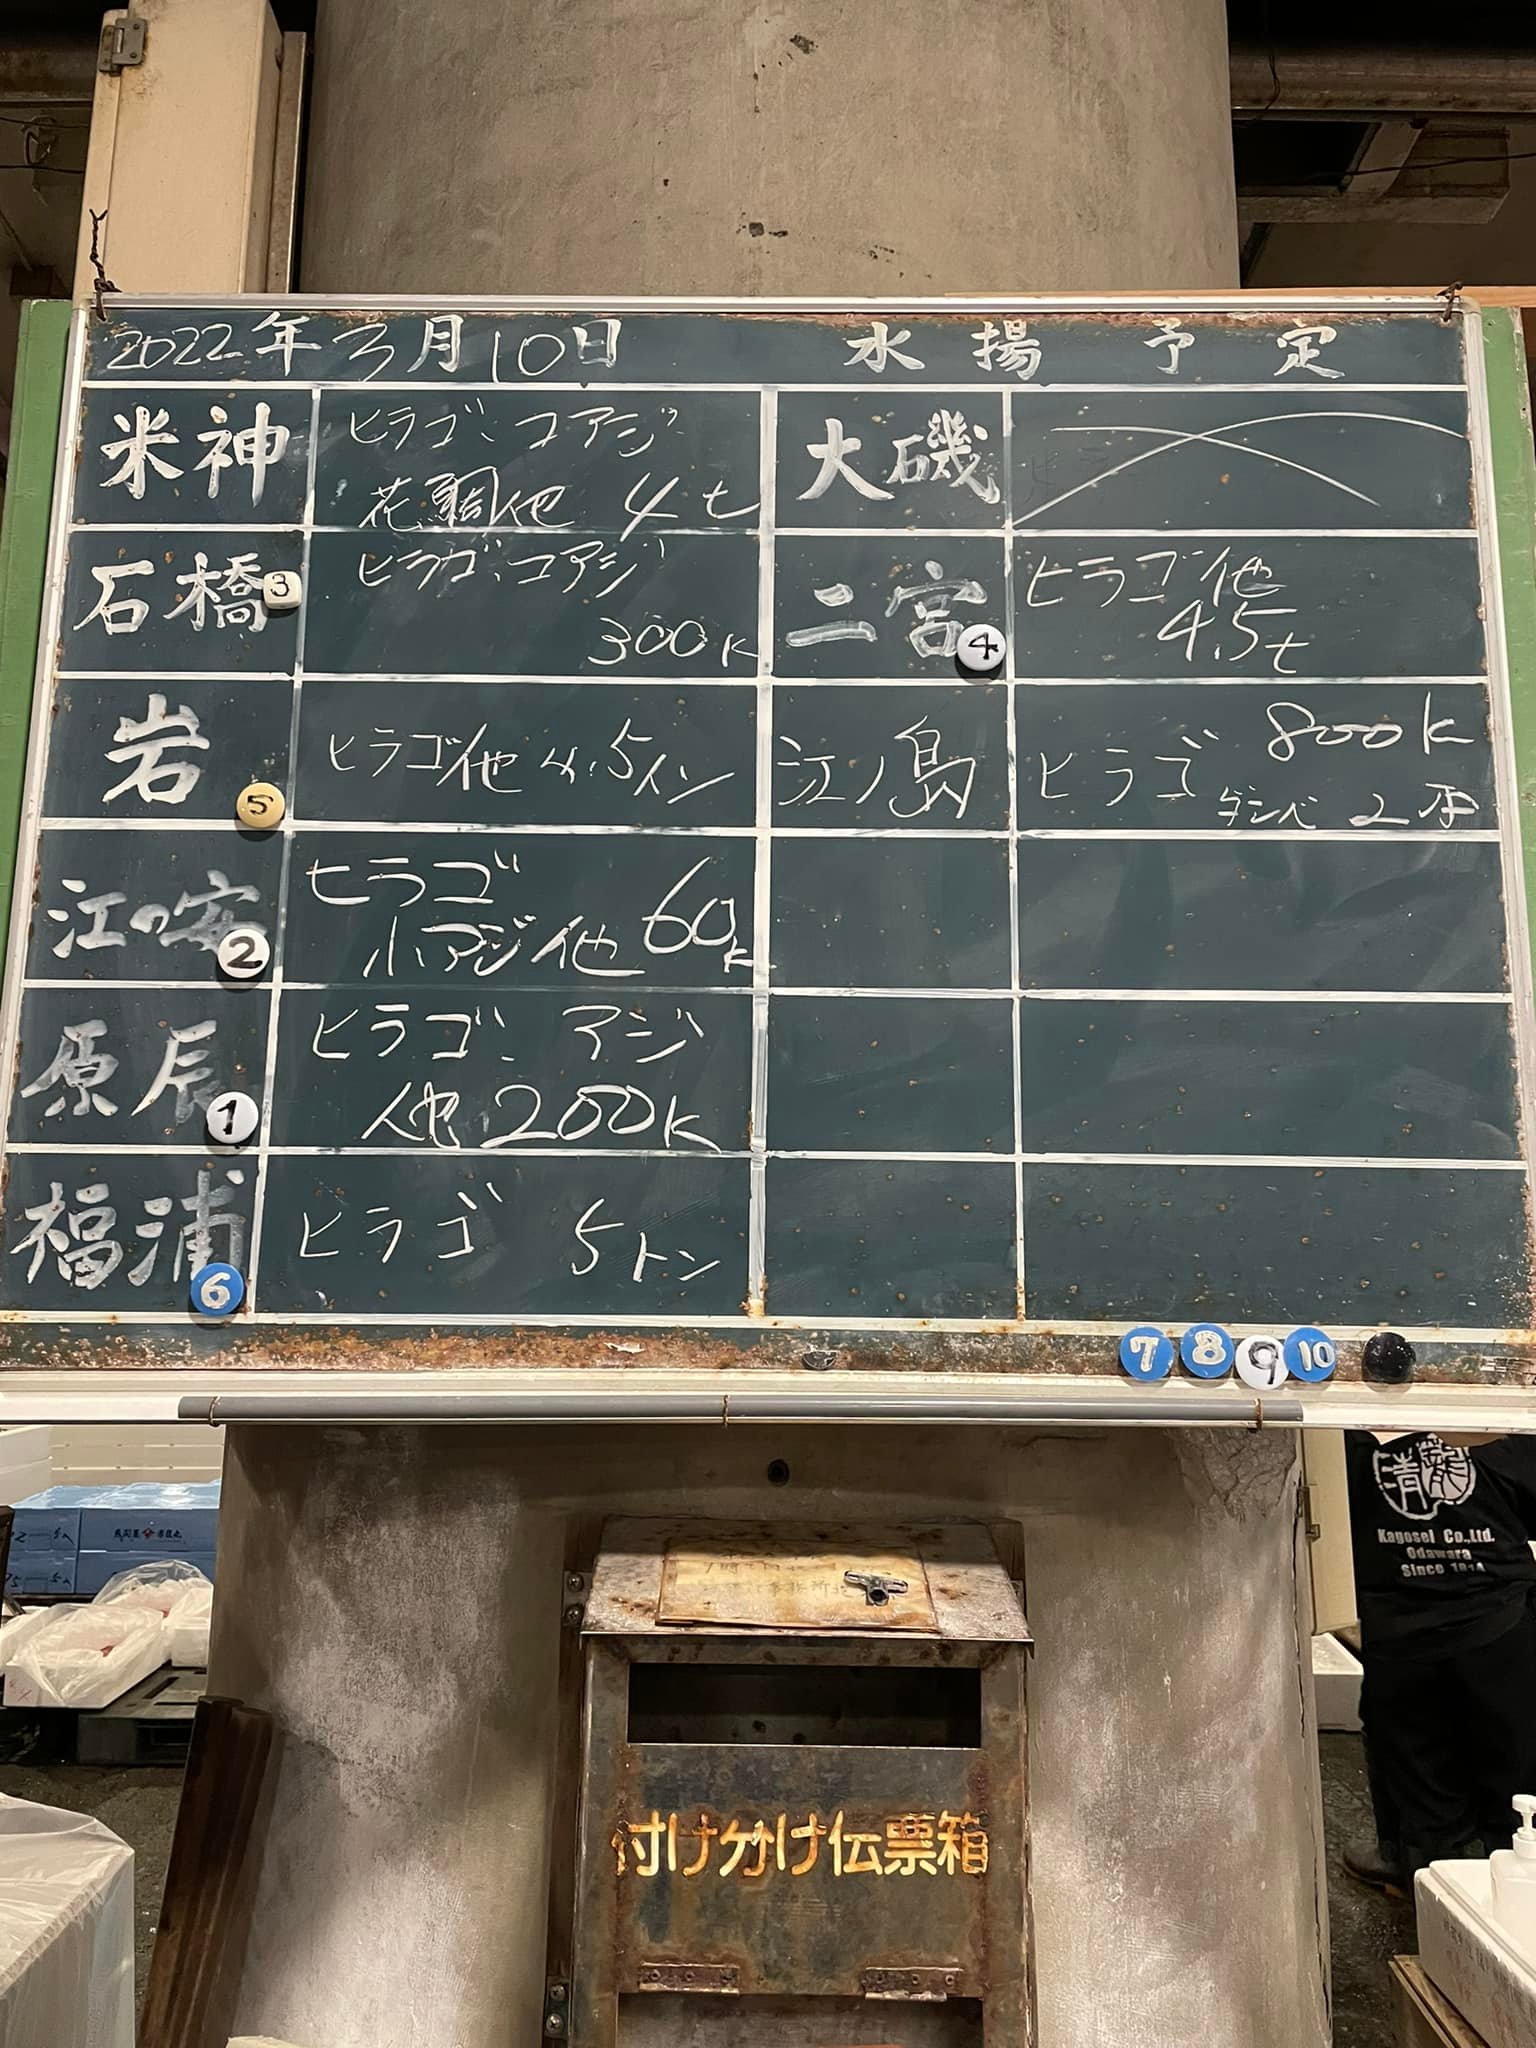 2022年3月10日 水揚予定
米神
ヒラゴ、コアジ
花鯛他 4t
石橋
3
ヒラゴ、コアジ
300K
岩
5
ヒラゴ他4.5トン
江の安
2
ヒラゴ
小アジ他 60K
原辰
1
ヒラゴ、アジ
他200K
福浦
6
ヒラゴ 5トン
大磯
二宮
4
ヒラゴ他
4.5t
江ノ島
ヒラゴ 800K
ダンベ 2
7 8 9 10
青龍
Kagosei Co.,Ltd.
Odawara
Since
付け分け伝票箱